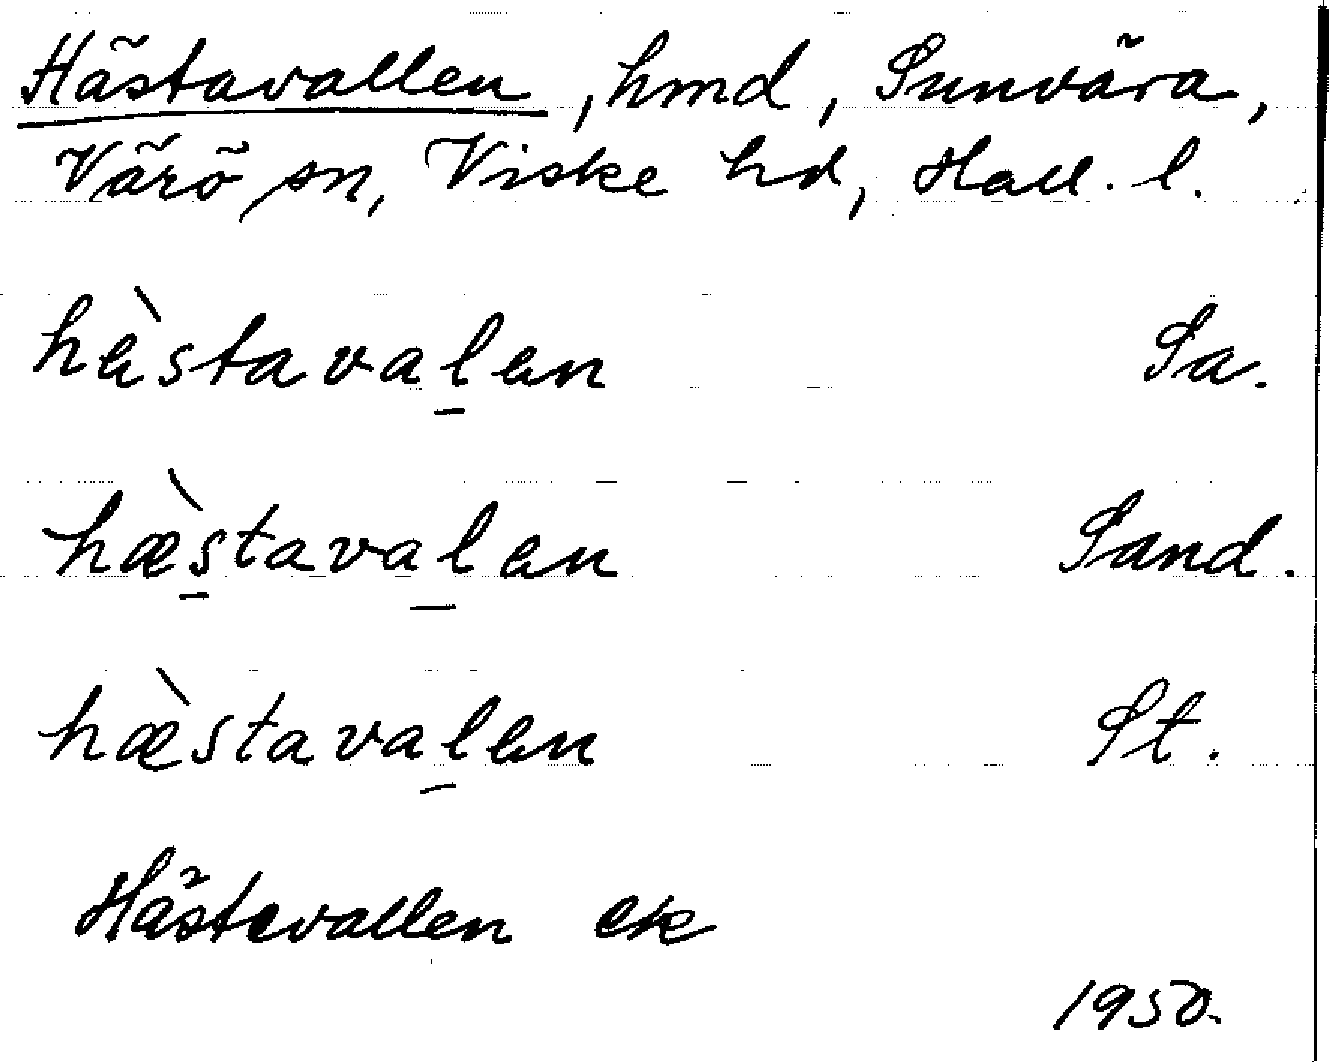 Hästavallen, hmd, Sunvära,
Värö sn, Viske hd, Hall. l.
hæ̀stava̲l̲ən Sa.
hæ̀s̲taval̲ən Sand.
hæ̀staval̲ən St.
Hästevallen ek
1950.